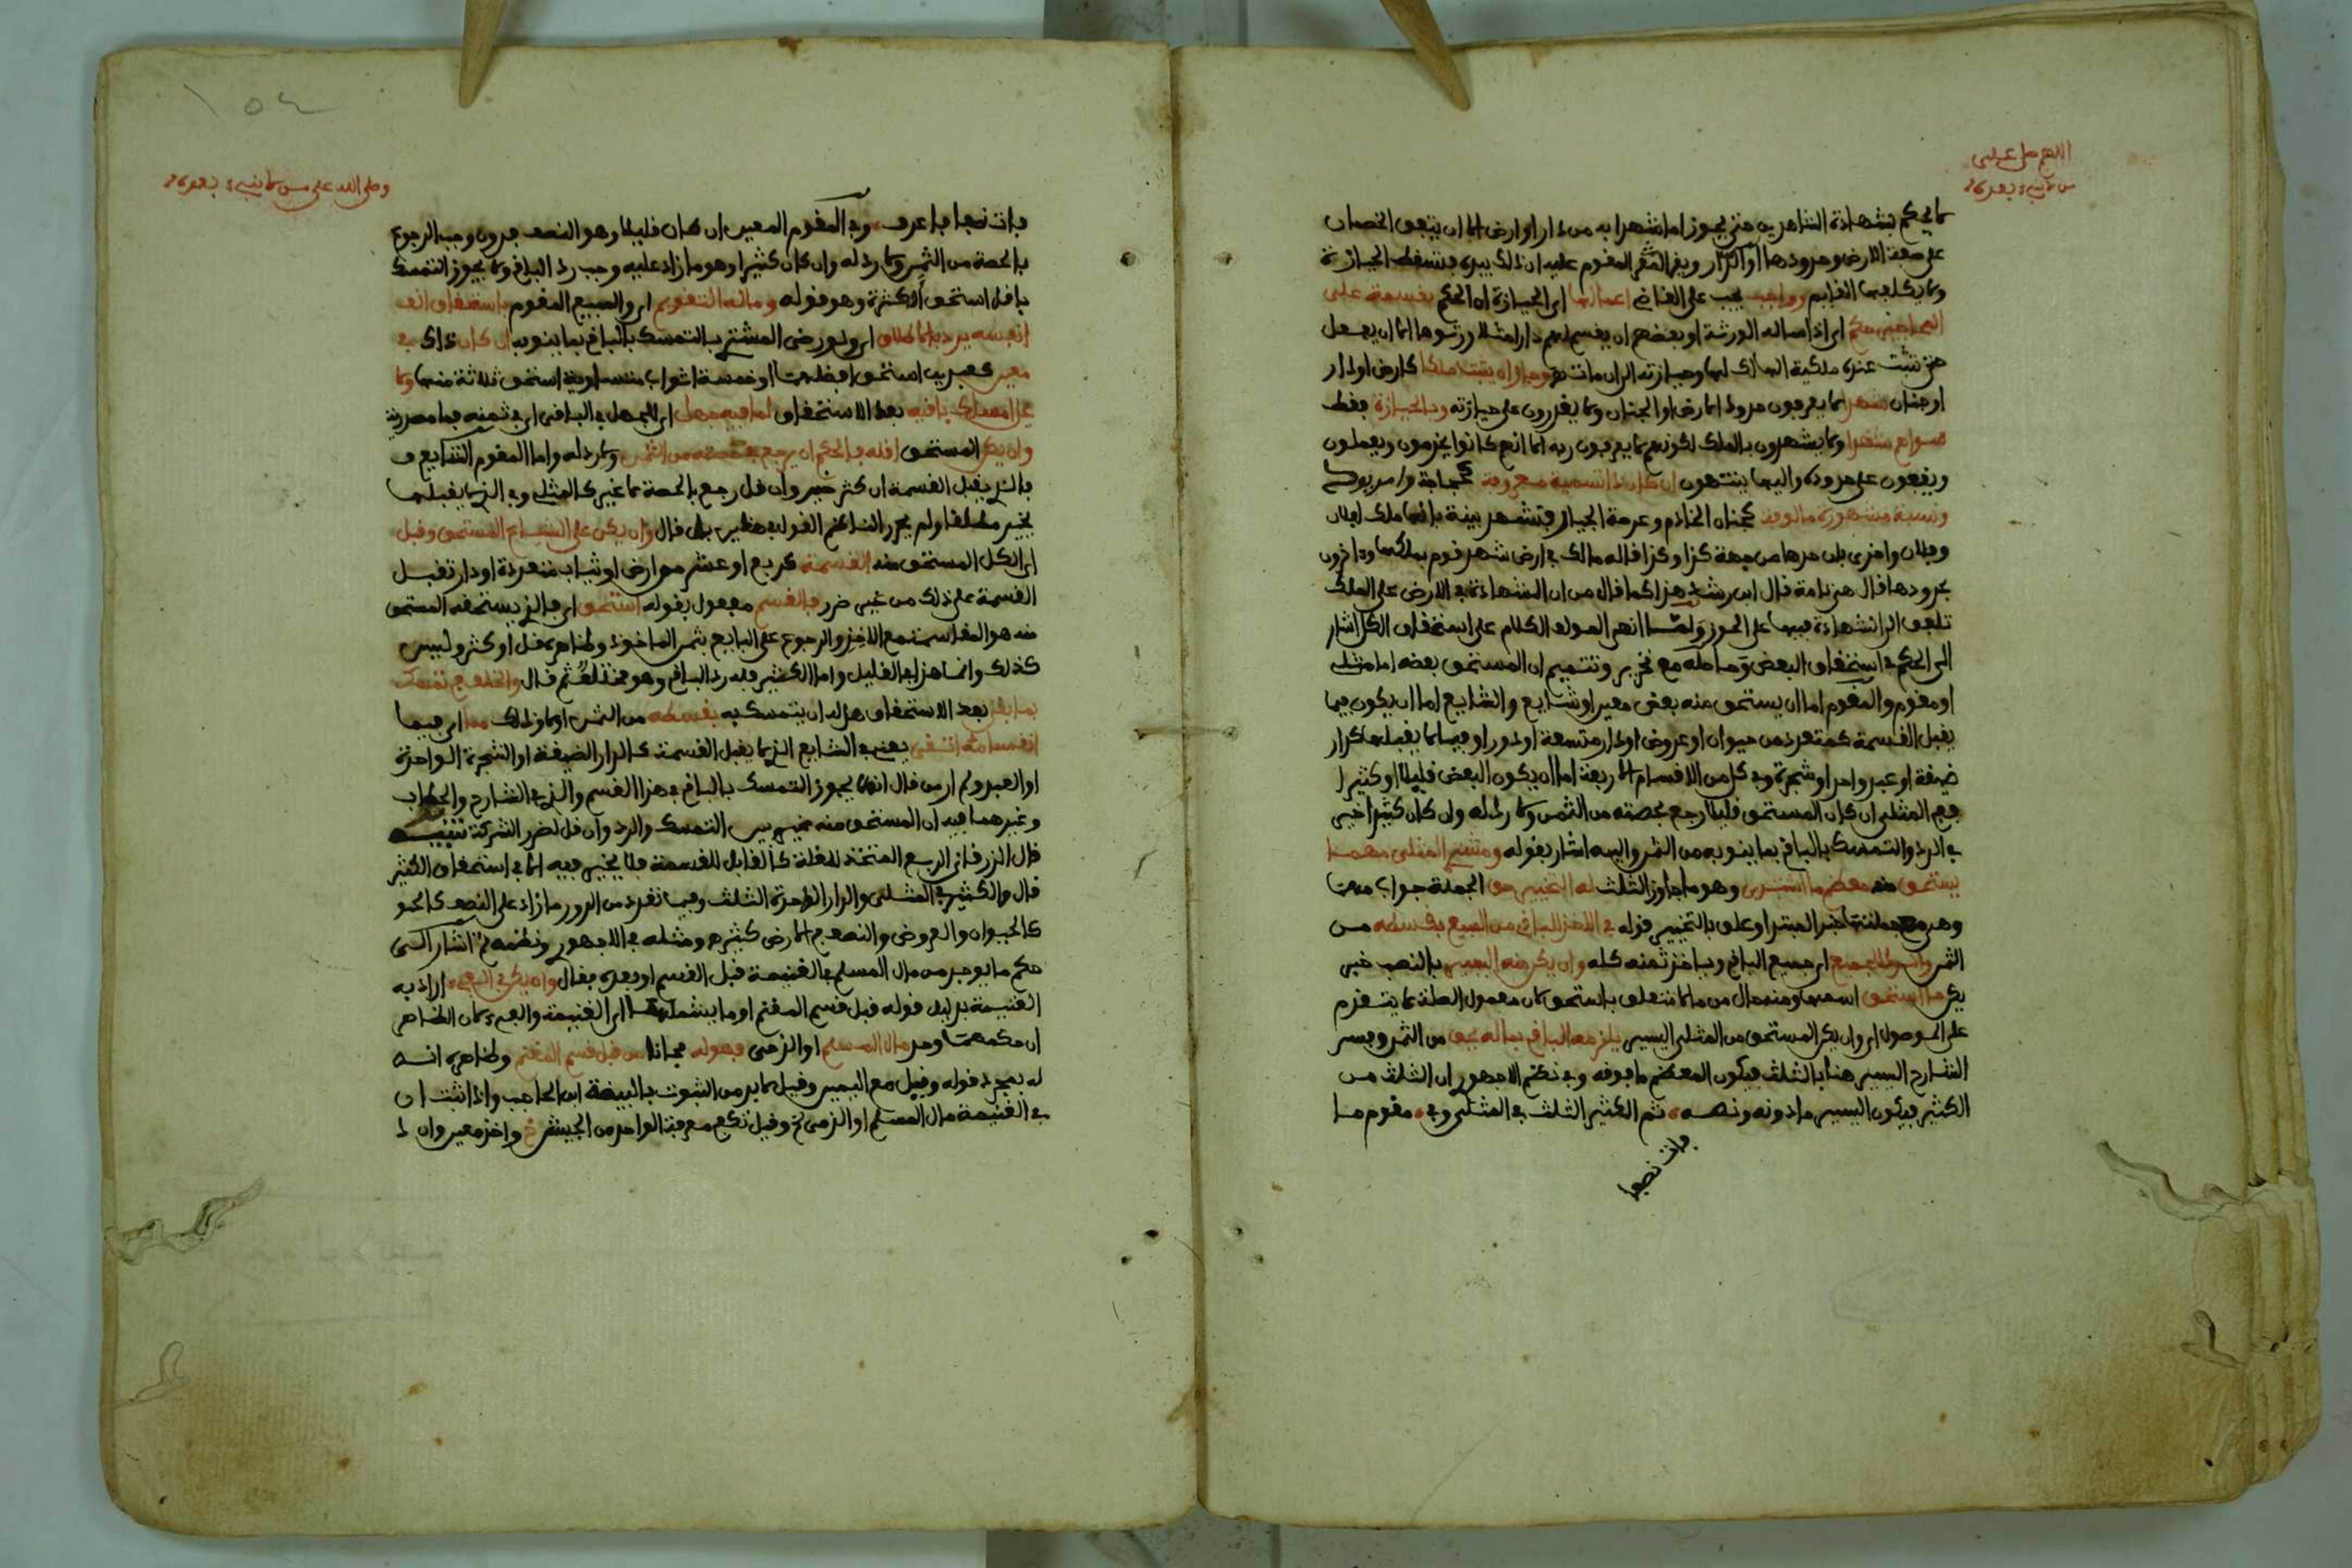 اللهم صل على
من لا نبيء بعده
لا يحكم بشهادة الشاهدين حتى يحوز اما شهدا به من دار او ارض الا ان يتفق الخصمان
على صفة الارض وحدودها او الدار ويقر المقوم عليه ان ذلك بيده فتسقط الحيازة
ولا يكلفها القايم وواجب يجب على القاضي اعمالها اي الحيازة ان الحكم بقسمة على
اي اذا ساله الورثة او بعضهم ان يقسم لهم دارا مثلا ورثوها الا ان يفعل
حتى تثبت عنده ملكية الهالك لها وحيازته الى ان مات كارض او دار
او جنان لا يعرفون حدود الارض او الجنان ولا يقدرون على حيازته وبالحيازة فقط
سواهم ولا يشهدون بالملك لكونهم لا يعرفون ربه الا انهم كانوا يخدمون ويعملون
ويقفون على حدوده واليها ينتهون ان كان ذا التسمية معروفة
ونسبة مشهورة مالوفة كجنان الخادم وعرصة الجيار فتشهد بينة بانها ملك لفلان
وفلان واخرى بان حدها من جهة كذا وكذا قاله مالك في ارض شهد قوم بملكها واخرون
بحدودها قال هي تامة قال ابن رشد هذا كما قال من ان الشهادة في الارض على الملك
تلفق الى الشهادة فيها على الحوز ولما انهى المولف الكلام على استحقاق الكل اشار
الى الحكم في استحقاق البعض وحاصله مع تحرير وتتميم ان المستحق بعضه اما مثلي
او مقوم والمقوم اما ان يستحق منه بعض معين او شايع والشايع اما ان يكون فيما
يقبل القسمة كمتعدد من حيوان او عروض او دار متسعة او دور او فيما لا يقبلها كدار
ضيقة او عبد واحد او شجرة وفي كل من الاقسام الاربعة اما ان يكون البعض قليلا او كثيرا
ففي المثلي ان كان المستحق قليلا رجع بحصته من الثمن ولا رد له وان كان كثيرا خير
في الرد والتمسك بالباقي بما ينوبه من الثمن واليه اشار بقوله ومشتري المثلي مهما
يستحق منه معظم ما اشترى وهو ما جاوز الثلث له التخيير حق الجملة جواب مهما
وهي مع جملتها خبر المبتدا وعلق بالتخيير قوله في الاخذ للباقي من المبيع بقسطه من
الثمن والرد للجميع اي جميع الباقي وياخذ ثمنه كله وان يكن منه اليسير بالنصب خبر
يكن ما استحق اسمها ومنه حال من ما لا متعلق باستحق لان معمول الصلة لا يتقدم
على الموصول اي وان يكن المستحق من المثلي اليسير يلزمه الباقي بما له يحق من الثمن وفسر
الشارح اليسير هنا بالثلث فيكون المعظم ما فوقه وفي نظم الاجهوري ان الثلث من
الكثير فيكون اليسير ما دونه ونصه ثم الكثير الثلث في المثلي وفي مقوم ما
فات نصفا
١٥٤
وصلى الله على من لا نبيء بعده
فات نصفا فاعرف وفي المقوم المعين ان كان قليلا وهو النصف فدون وجب الرجوع
بالحصة من الثمن ولا رد له وان كان كثيرا وهو ما زاد عليه وجب رد الباقي ولا يجوز التمسك
باقل استحق اكثره وهو قوله وما له التقويم اي والمبيع المقوم باستحقاق
انفسه يرد بالاطلاق اي ولو رضي المشتري بالتمسك بالباقي بما ينوبه ان كان ذاك في
معين كعبدين استحق افضلهما او خمسة اثواب متساوية استحق ثلاثة منها ولا
يحل امساك باقيه بعد الاستحقاق لما فيه جهل اي للجهل في الباقي اي في ثمنه فما مصدرية
وان يكن المستحق اقله فالحكم ان يرجع بحصته من الثمن ولا رد له واما المقوم الشايع
فالذي يقبل القسمة ان كثر خير وان قل رجع بالحصة لا غير كالمثلي وفي الذي لا يقبلها
يخير مطلقا ولم يحرر الناظم القول في هذين بل قال وان يكن على الشياع المستحق وقبل
اي الكل المستحق منه القسمة كربع او عشر من ارض او ثياب متعددة او دار تقبل
القسمة على ذلك من غير ضرر فالقسم مفعول بقوله استحق اي فالذي يستحقه المستحق
منه هو المقاسمة مع الاخذ والرجوع على البايع بثمن الماخوذ وظاهره قل او كثر وليس
كذلك وانما هذا في القليل واما الكثير فله رد الباقي وهو ثم قال والخلف في تمسك
بما بقي بعد الاستحقاق هل له ان يتمسك به بقسطه من الثمن او لا وذلك مما اي فيما
انقسامه اتقي يعني في الشايع الذي لا يقبل القسمة كالدار الضيقة او الشجرة الواحدة
او العبد ولم ار من قال انه لا يجوز التمسك بالباقي في هذا القسم والذي في الشارح والحطاب
وغيرهما فيه ان المستحق منه مخير بين التمسك والرد وان قل لضرر الشركة تنبيه
قال الزرقاني الربع المتخذ للغلة كالقابل للقسمة فلا يخير فيه الا في استحقاق الكثير
قال والكثير في المثلي والدار الواحدة الثلث وفيما تعدد من الدور ما زاد على النصف
كالحيوان والعروض والنصف في الارض كثير ومثله في الاجهوري ونظمه ثم اشار الى
حكم ما يوجد من مال المسلم في الغنيمة قبل القسم او بعده فقال وان يكن في الفيء اراد به
الغنيمة بدليل قوله قبل قسم المغنم او ما يشملهما اي الغنيمة والفيء لان الظاهر
ان حكمهما واحد مال المسلم او الذمي فهو له مجانا من قبل قسم المغنم وظاهره انه
له بمجرد قوله وقيل مع اليمين وقيل لا بد من الثبوت بالبينة ابن الحاجب واذا ثبت ان
في الغنيمة مال المسلم او الذمي وقيل تكفي معرفة الواحد من الجيش واخذ معين وان